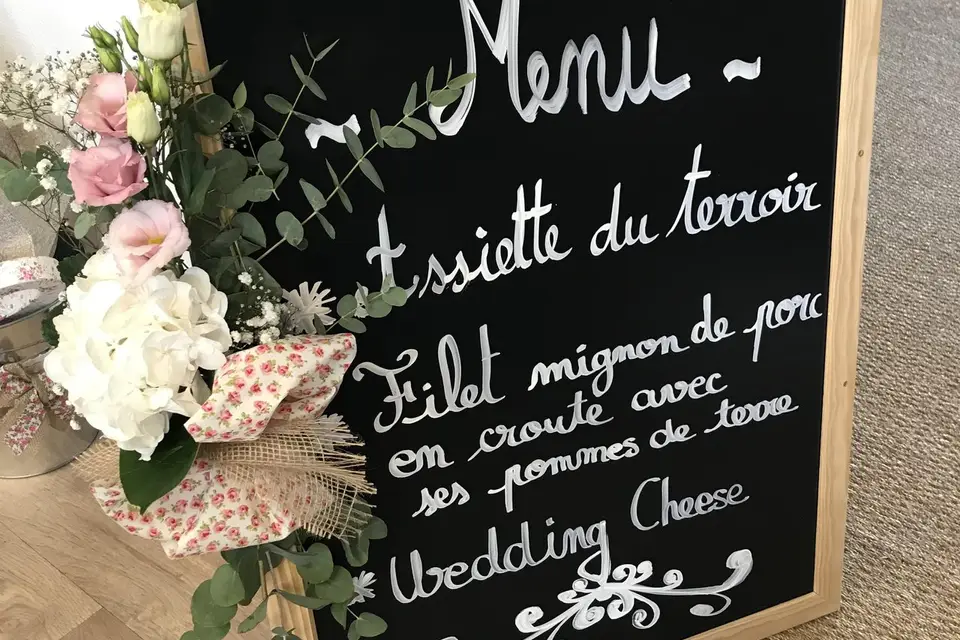 ~ Menu ~
Assiette du terroir
Filet mignon de porc
en croute avec
ses pommes de terre
Wedding Cheese